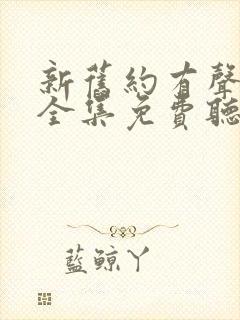 新舊約有聲
全集免費聽
藍鯨丫